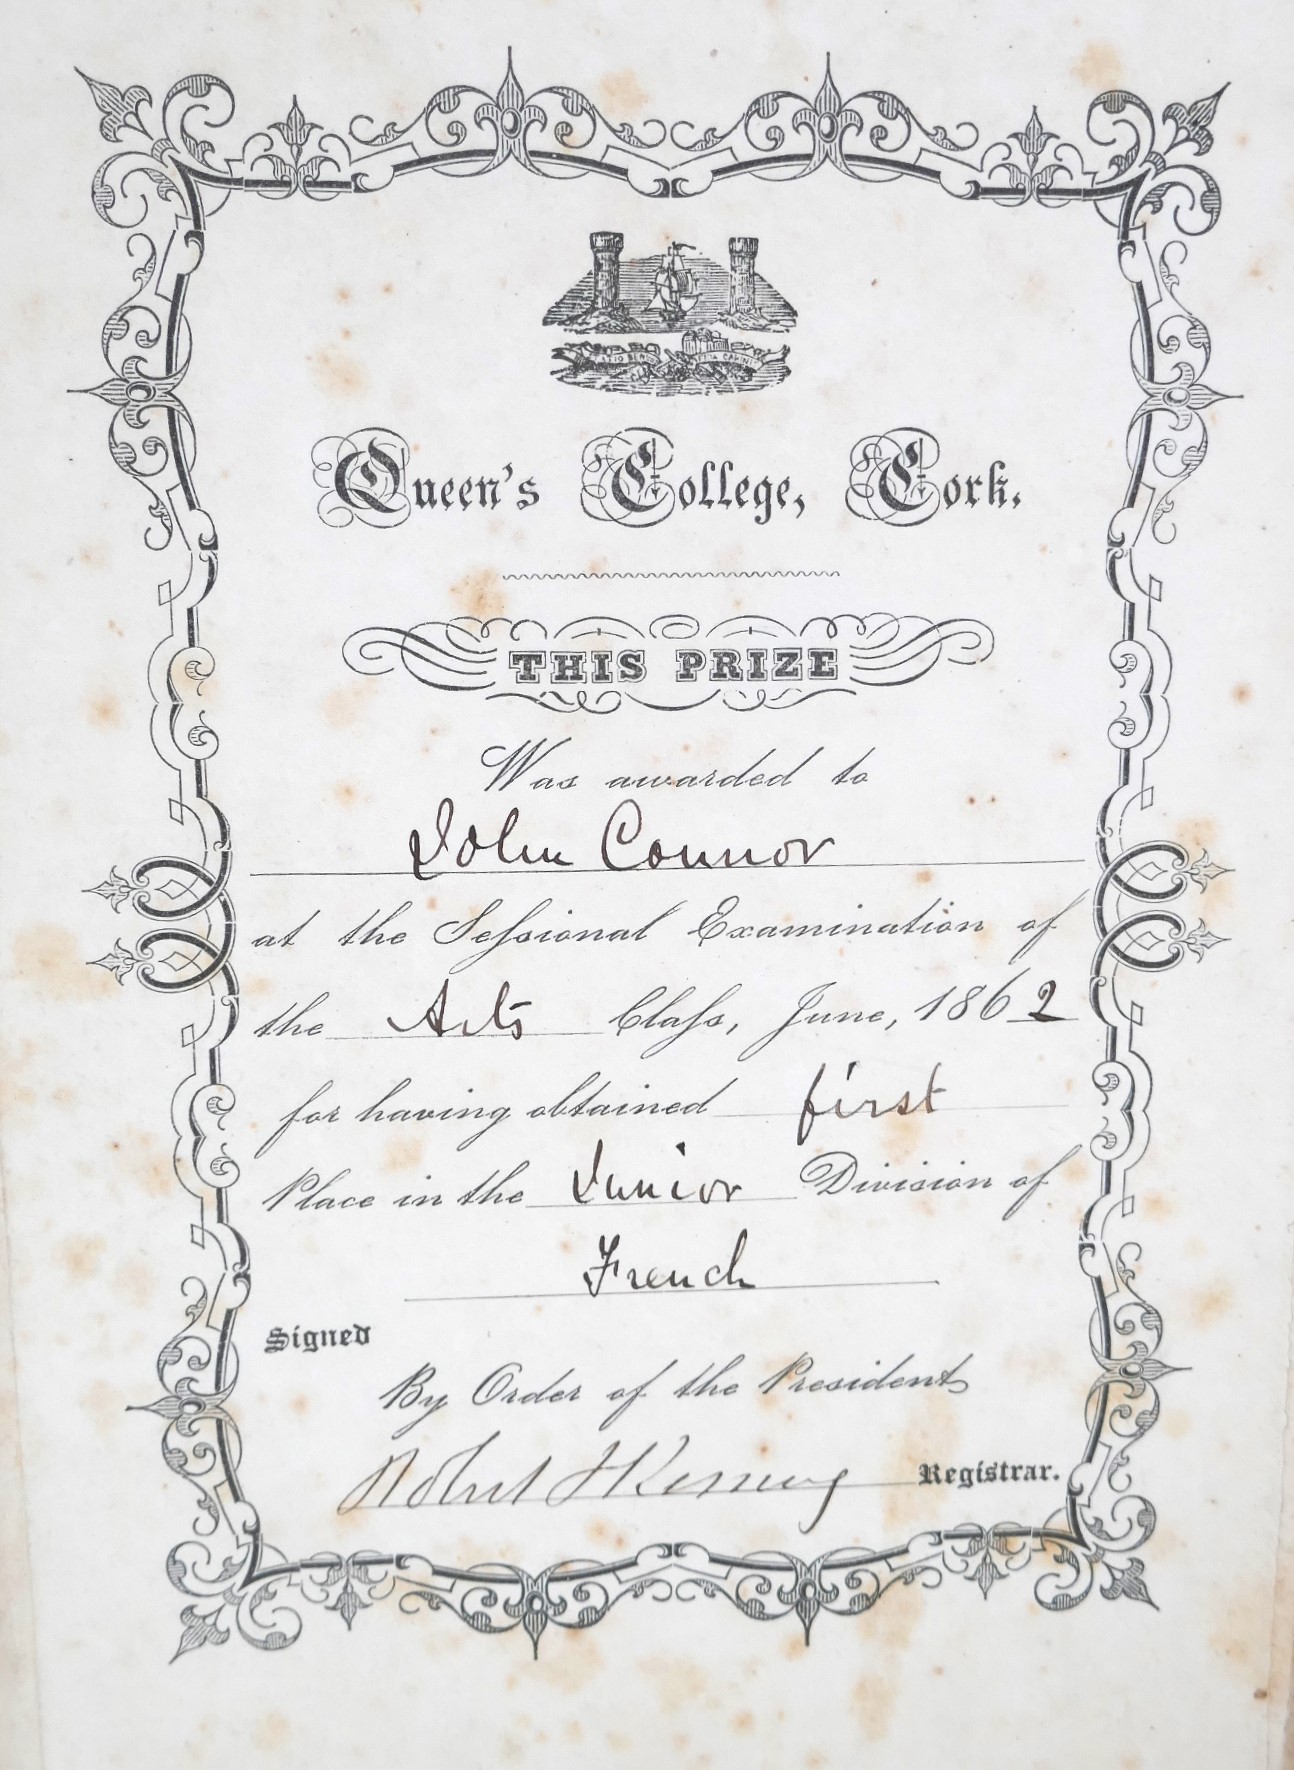 STATIO BENE FIDA CARINIS
Queen's College, Cork.
THIS PRIZE
Was awarded to
John Connor
at the Sessional Examination of
the Arts Class, June, 1862
for having obtained first
Place in the Junior Division of
French
Signed
By Order of the President
Robert J Kenny Registrar.